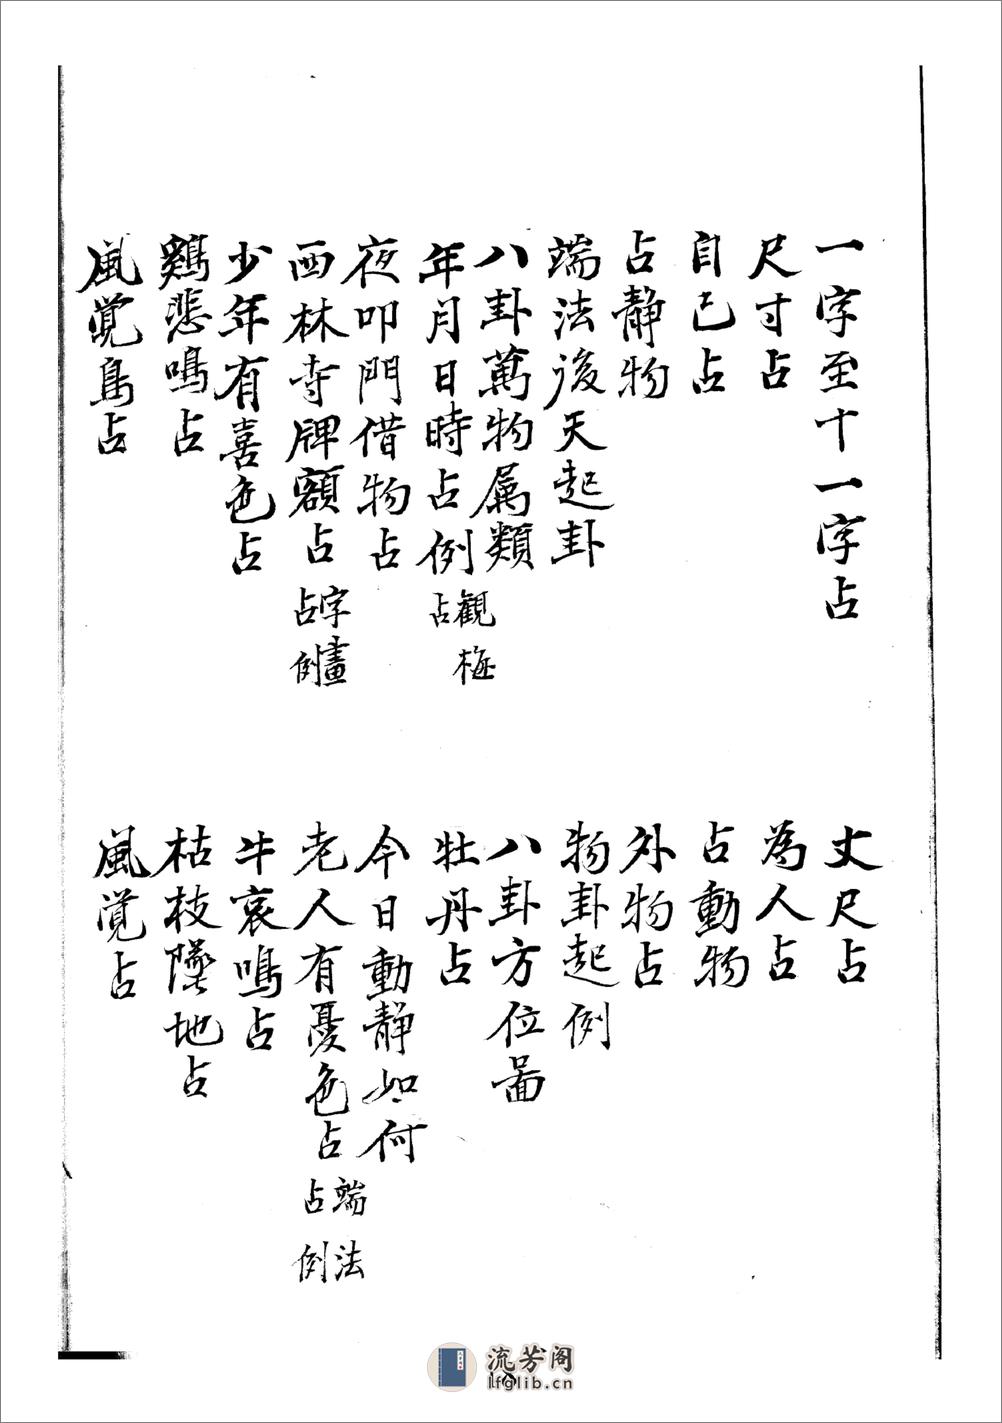 一字至十一字占
丈尺占
尺寸占
為人占
自己占
占動物
占靜物
外物占
端法後天起卦
物卦起例
八卦萬物属類
八卦方位啚
年月日時占例 觀梅占
牡丹占
夜叩門借物占
今日動靜如何
西林寺牌額占 字畫占例
老人有憂色占 端法占例
少年有喜色占
牛哀鳴占
鷄悲鳴占
枯枝墜地占
風覚鳥占
風覚占
流芳阁
lfglib.cn